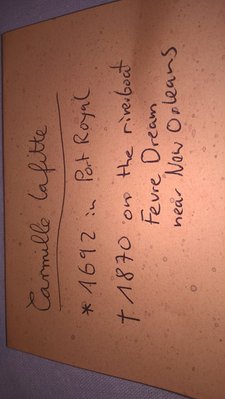 Carmilla Lafitte
* 1692 in Port Royal
† 1870 on the riverboat
Fevre Dream
near New Orleans